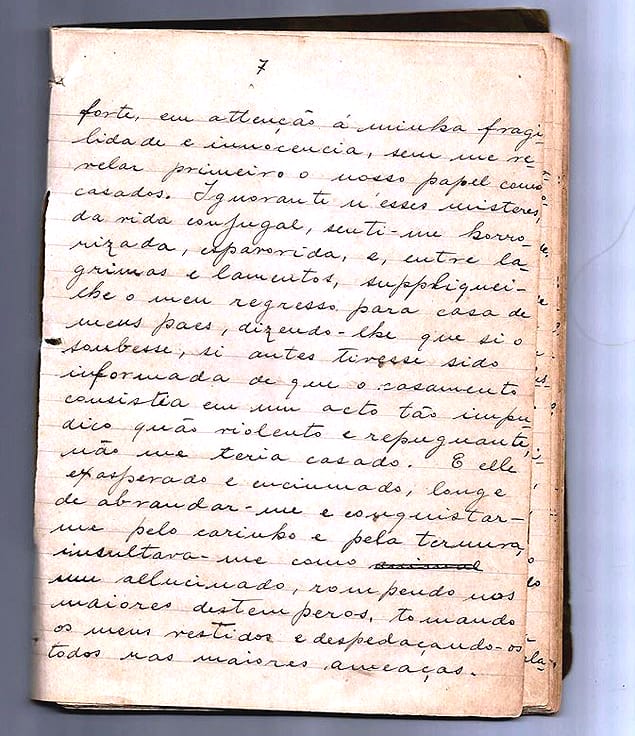 7
forte, em attenção á minha fragi-
lidade e innocencia, sem me re-
velar primeiro o nosso papel como
casados. Ignorante n'esses misteres,
da vida conjugal, senti-me horro-
rizada, espavorida, e, entre la-
grimas e lamentos, suppliquei-
lhe o meu regresso para casa de
meus paes, dizendo-lhe que si o
soubesse, si antes tivesse sido
informada de que o casamento
consistia em um acto tão impu-
dico quão violento e repugnante,
não me teria casado. E elle
exasperado e enciumado, longe
de abrandar-me e conquistar-
me pelo carinho e pela ternura,
insultava-me como
um allucinado, rompendo nos
maiores destemperos, tomando
os meus vestidos e despedaçando-os
todos nas maiores ameaças.